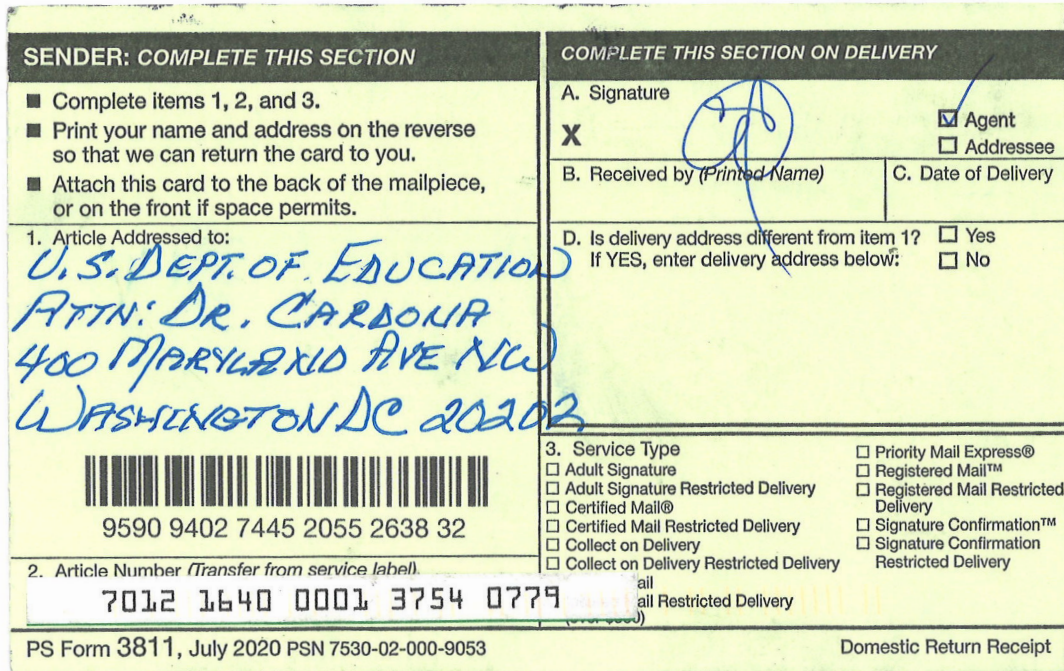 SENDER: COMPLETE THIS SECTION
■ Complete items 1, 2, and 3.
■ Print your name and address on the reverse
so that we can return the card to you.
■ Attach this card to the back of the mailpiece,
or on the front if space permits.
1. Article Addressed to:
U.S. DEPT. OF EDUCATION
ATTN: DR. CARDONA
400 MARYLAND AVE NW
WASHINGTON DC 20202
9590 9402 7445 2055 2638 32
2. Article Number (Transfer from service label)
7012 1640 0001 3754 0779
COMPLETE THIS SECTION ON DELIVERY
A. Signature
X
☑ Agent
☐ Addressee
B. Received by (Printed Name)
C. Date of Delivery
D. Is delivery address different from item 1? ☐ Yes
If YES, enter delivery address below: ☐ No
3. Service Type
☐ Adult Signature
☐ Adult Signature Restricted Delivery
☐ Certified Mail®
☐ Certified Mail Restricted Delivery
☐ Collect on Delivery
☐ Collect on Delivery Restricted Delivery
ail
ail Restricted Delivery
☐ Priority Mail Express®
☐ Registered Mail™
☐ Registered Mail Restricted
Delivery
☐ Signature Confirmation™
☐ Signature Confirmation
Restricted Delivery
PS Form 3811, July 2020 PSN 7530-02-000-9053
Domestic Return Receipt